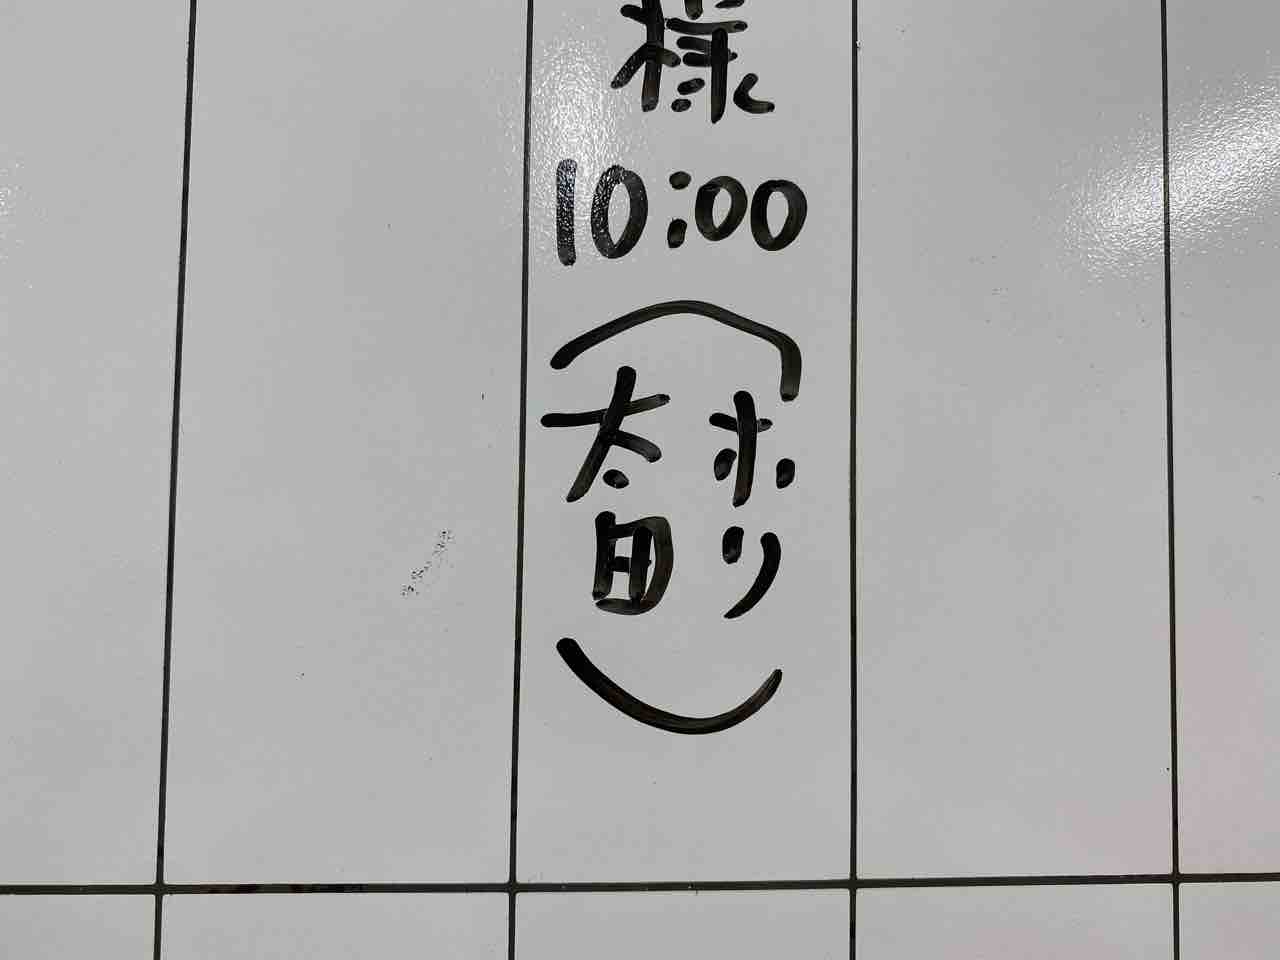 様
10:00
(ホリ
太田)